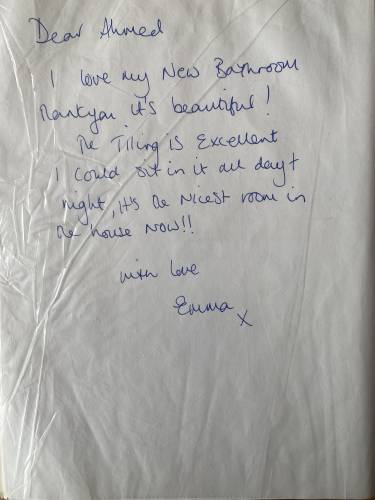 Dear Ahmed
I love my New Bathroom
Thankyou it's beautiful!
The Tiling is Excellent
I could sit in it all day +
night, it's the Nicest room in
the house Now!!
with love
Emma
x